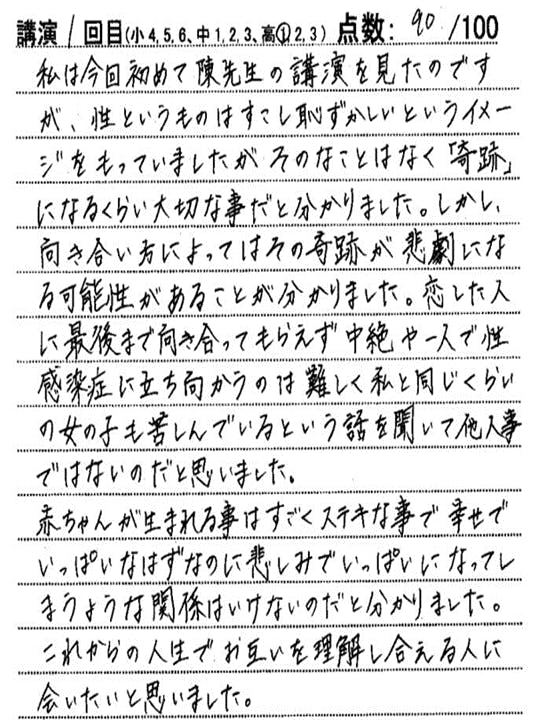 講演 1 回目(小4,5,6、中1,2,3、高①,2,3) 点数: 90 /100
私は今回初めて陳先生の講演を見たのです
が、性というものはすこし恥ずかしいというイメー
ジをもっていましたがそのなことはなく「奇跡」
になるくらい大切な事だと分かりました。しかし、
向き合い方によってはその奇跡が悲劇にな
る可能性があることが分かりました。恋した人
に最後まで向き合ってもらえず中絶や一人で性
感染症に立ち向かうのは難しく私と同じくらい
の女の子も苦しんでいるという話を聞いて他人事
ではないのだと思いました。
赤ちゃんが生まれる事はすごくステキな事で幸せで
いっぱいなはずなのに悲しみでいっぱいになってし
まうような関係はいけないのだと分かりました。
これからの人生でお互いを理解し合える人に
会いたいと思いました。